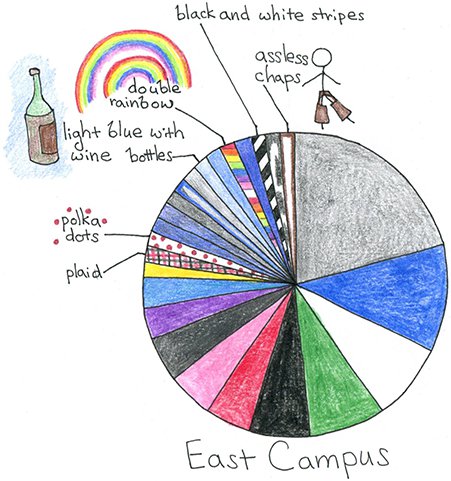 black and white stripes
assless
chaps
double
rainbow
light blue with
wine bottles
polka
dots
plaid
East Campus